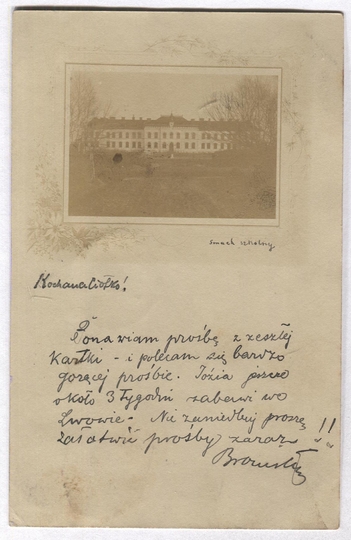 Gmach szkolny
Kochana Ciotko!
Ponawiam prośbę z zeszłej
kartki – i polecam się bardzo
gorącej prośbie. Józia jeszcze
około 3 tygodni zabawi we
Lwowie – Nie zaniedbuj proszę
załatwić prośby zaraz !!